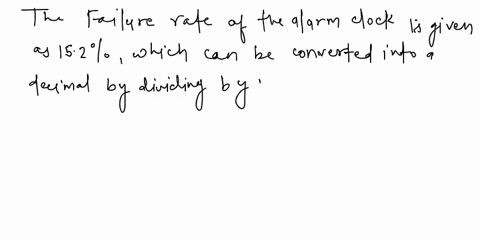 The Failure rate of the alarm clock is given
as 15.2%, which can be converted into a
decimal by dividing by